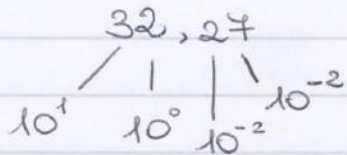 32,27
10¹ 10⁰ 10⁻² 10⁻²